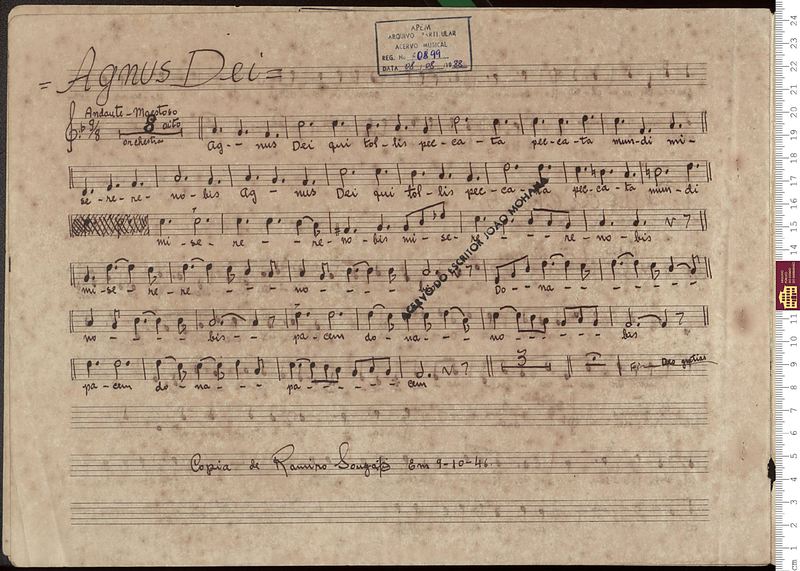 APEM
ARQUIVO PARTICULAR
ACERVO MUSICAL
REG. N. 0899
DATA 08 / 05 / 1988
= Agnus Dei =
Andante - Maestoso
9/8 8 oito
orchestra
Ag - - nus Dei qui tol - lis pec - ca - ta pec - ca - ta mun - di mi -
se - re - re - no - bis Ag - - nus Dei qui tol - lis pec - ca - ta pec - ca - ta mun - di
mi - se - re - - re - no - bis mi - se - re - - re - no - bis
mi - se - re - re - - - no - - - bis Do - na - - - -
no - - - - bis - - pa - cem do - na - - - no - - - - bis
pa - cem do - na - - - - pa - - - - - cem
3
Fim Deo gratias
ACERVO DO ESCRITOR JOÃO MOHANA
Copia de Ramiro Souza Em 9-10-46
cm 1 2 3 4 5 6 7 8 9 10 11 12 13 14 15 16 17 18 19 20 21 22 23 24